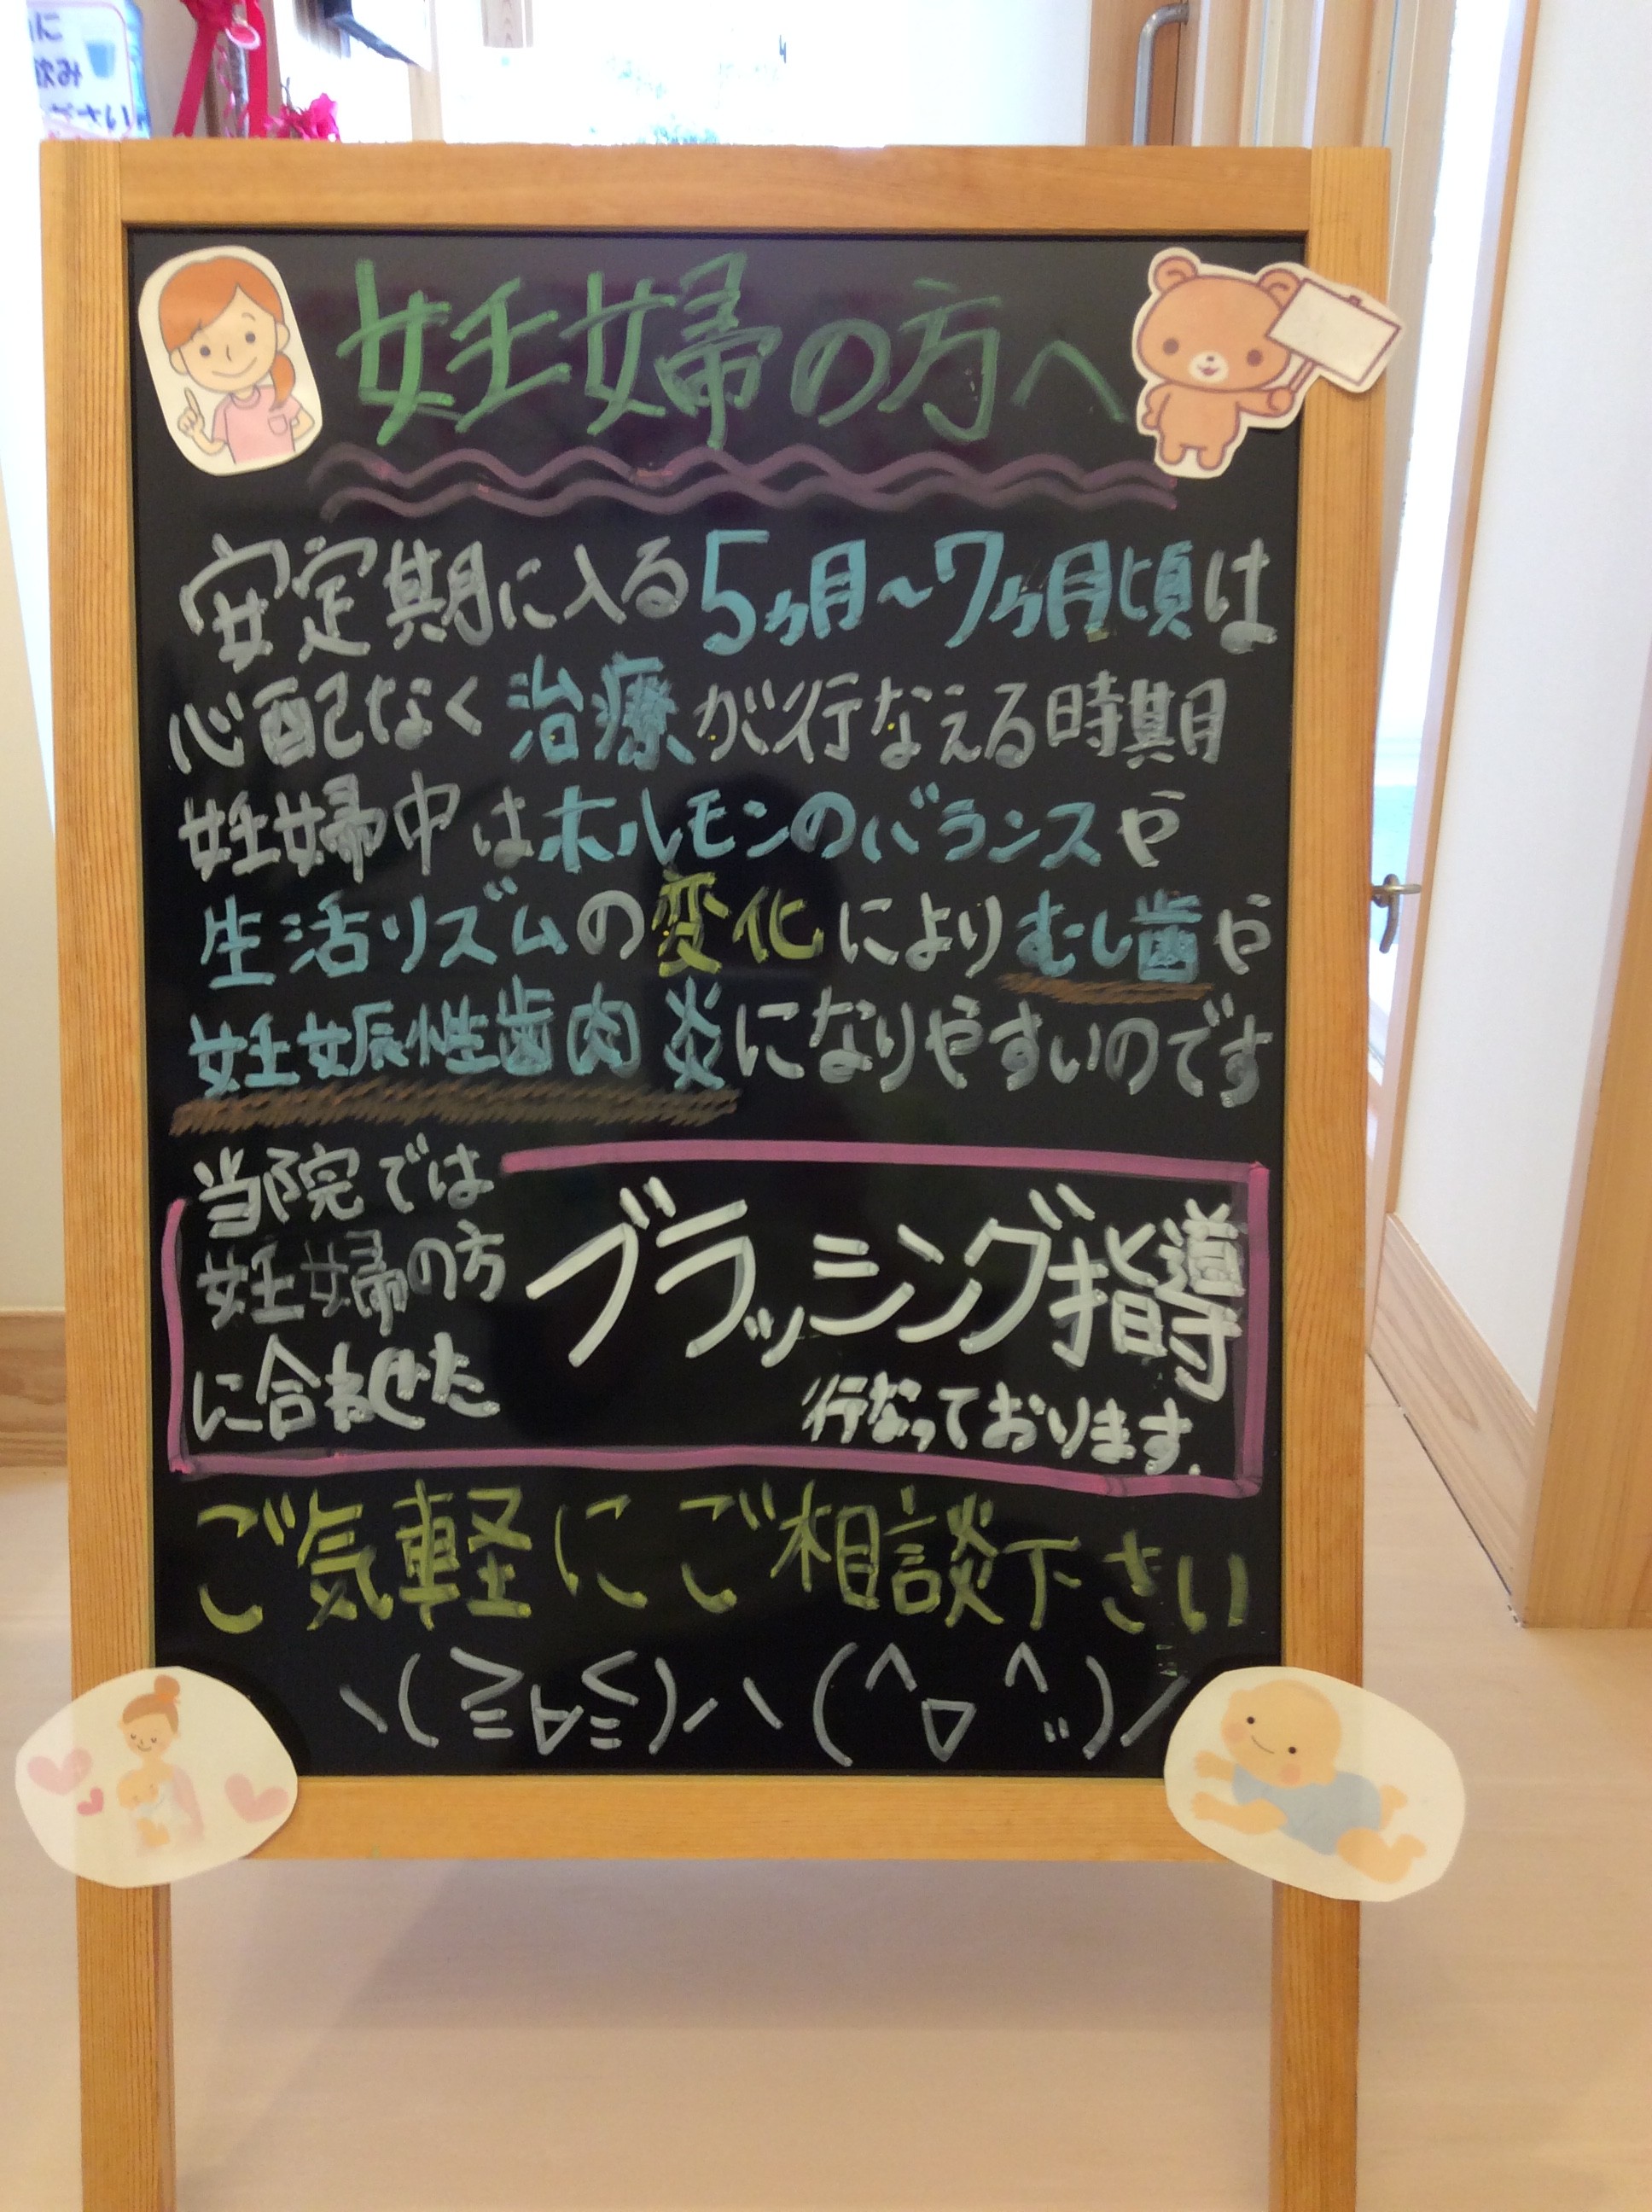 に
飲み
ださい
妊婦の方へ
安定期に入る5ヶ月～7ヶ月頃は
心配なく治療が行なえる時期
妊婦中はホルモンのバランスや
生活リズムの変化によりむし歯や
妊娠性歯肉炎になりやすいのです
当院では
妊婦の方
に合わせた
ブラッシング指導
行なっております.
ご気軽にご相談下さい
ヽ(≧∀≦)ノヽ(^▽^")/